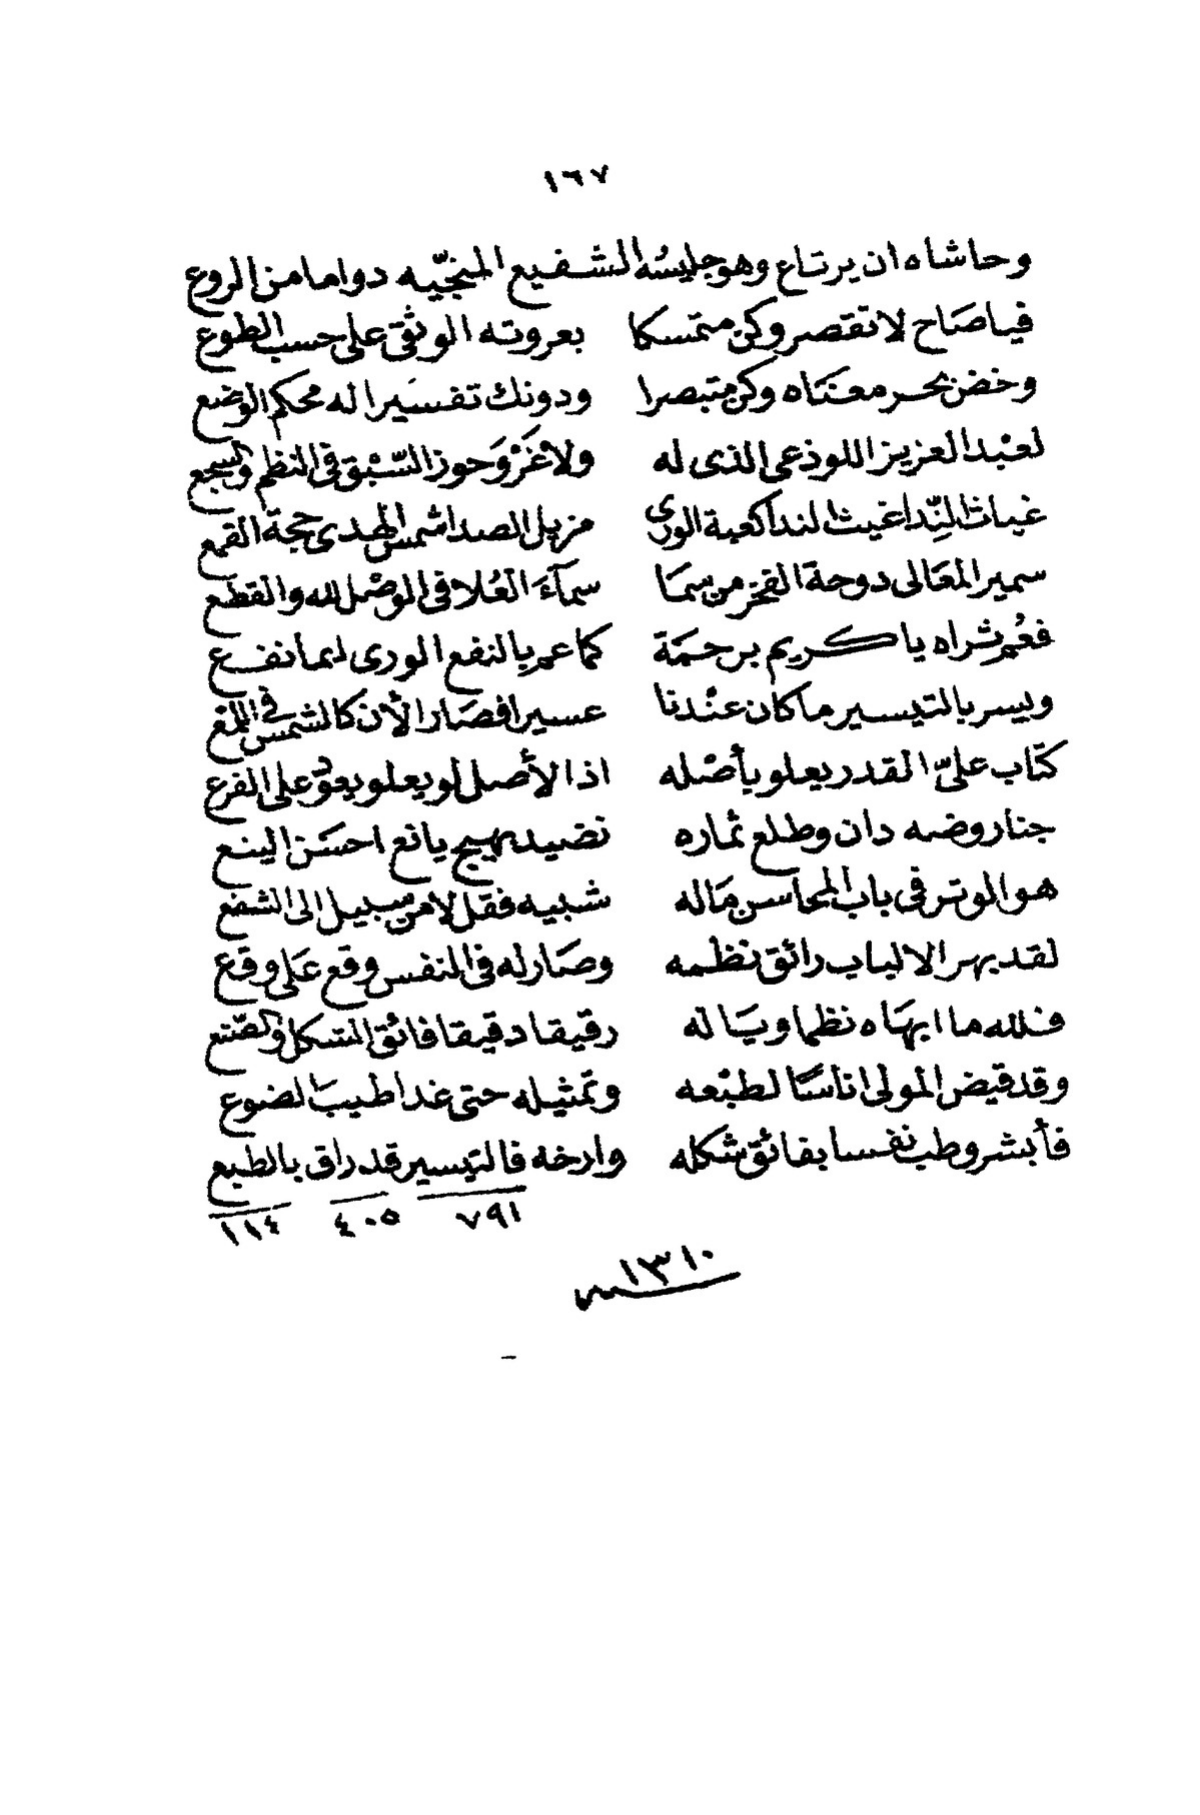 ١٦٧
وحاشاه ان يرتاع وهو جليسه الشفيع المنجّيه دواما من الروع
فيا صاح لا تقصر وكن متمسكا بعروته الوثقى على حسب الطوع
وخض بحر معناه وكن متبصرا ودونك تفسيرا له محكم الوضع
لعبْد العزيز اللوذعى الذى له ولا غَرْوَ حوز السَّبْق فى النظم والسجع
غياث النِّدا غيث الندا كعبة الورى مزيل الصدا شمس الهدى حجة القمع
سمير المعَالى دوحة الفخر من سمَا سمآءَ العُلا فى الوصْل لله والقطع
فعُم ثراه يا كريم برحمَة كما عم بالنفع الورى ايما نفع
ويسر بالتيسير ما كان عنْدنا عسيرا فصَار الأن كالشمس فى
كتاب علىّ القدر يعلو بأصْله اذا الأصل لو يعلو يعوّ على الفرع
جنا روضه دان وطلع ثماره نضيد بهيج يانع احسَن الينع
هو الموتر فى باب المحاسن مَا له شبيه فقل لا من سبيل الى الشفع
لقد بهر الالباب رائق نظمه وصَار له فى النفس وقع عَلى وقع
فلله ما ابهَاه نظما ويَا له رقيقا دقيقا فائق الشكل والصّنع
وقد قيض المولى اناسًا لطبْعه وتمثيله حتى غدا طيبَ الضوع
فأبشر وطب نفسا بفائق شكله وارخه فالتيسير قد راق بالطبع
٧٩١ ٤٠٥ ١١٤
١٣١٠